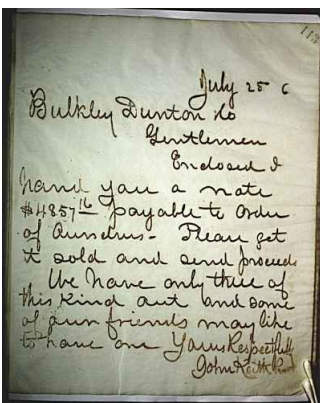 113
July 25 6
Bulkley Dunton Co
Gentlemen
Enclosed I
hand you a note
$4857 16 payable to order
of Ourselves - Please get
it sold and send proceeds
We have only three of
this kind out and some
of our friends may like
to have one Yours Respectfully
John Keith